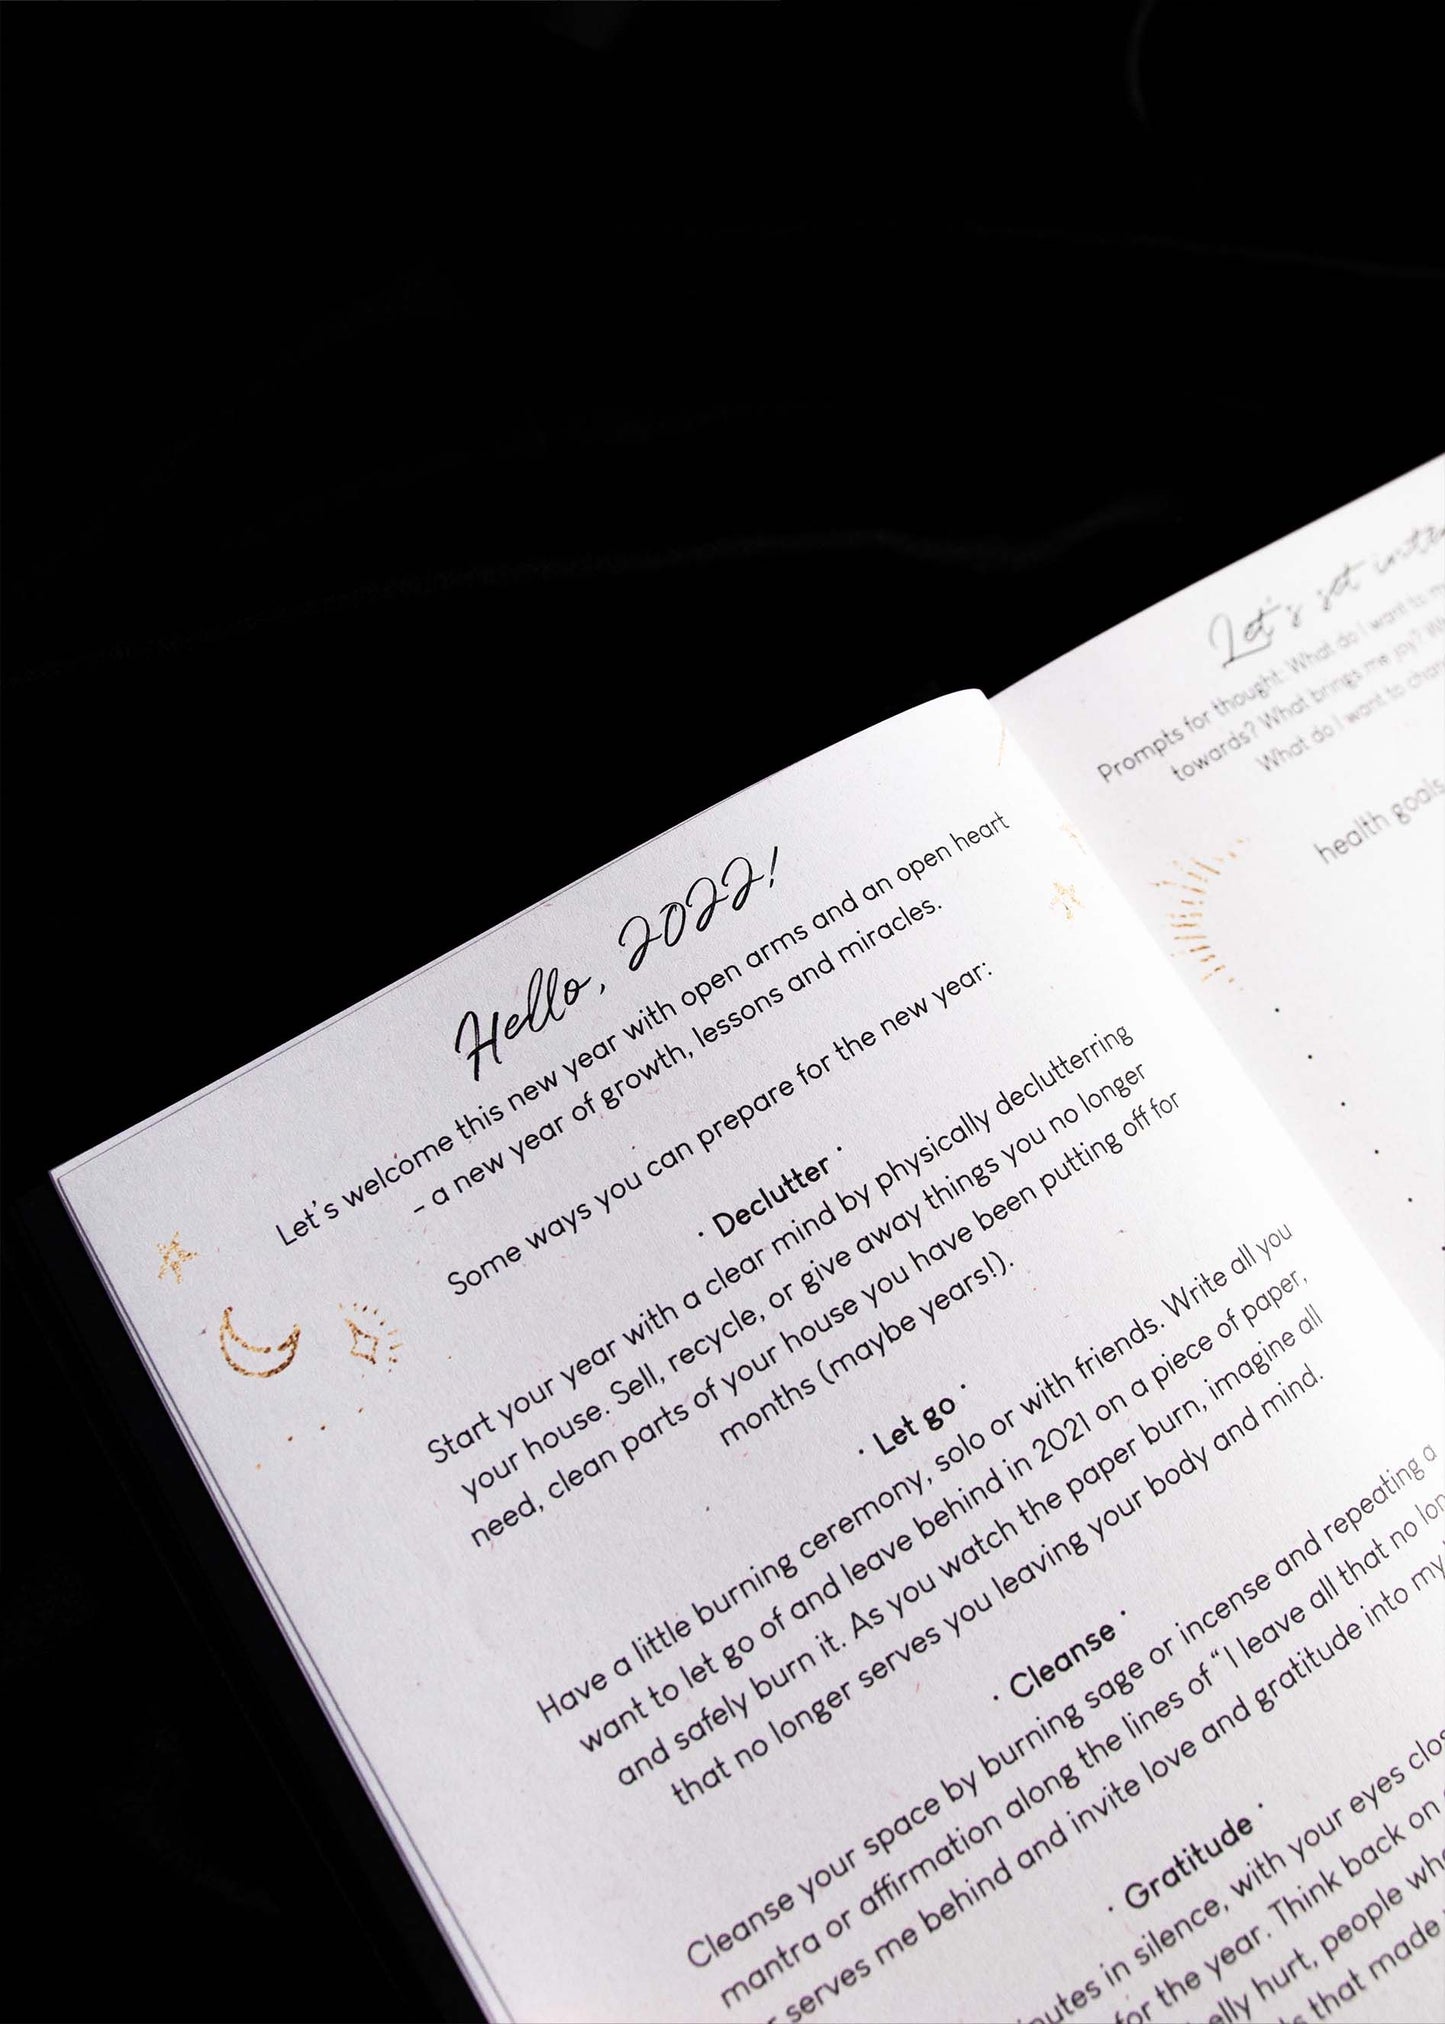 Hello, 2022!
Let's welcome this new year with open arms and an open heart
- a new year of growth, lessons and miracles.
Some ways you can prepare for the new year:
· Declutter ·
Start your year with a clear mind by physically decluttering
your house. Sell, recycle, or give away things you no longer
need, clean parts of your house you have been putting off for
months (maybe years!).
· Let go ·
Have a little burning ceremony, solo or with friends. Write all you
want to let go of and leave behind in 2021 on a piece of paper,
and safely burn it. As you watch the paper burn, imagine all
that no longer serves you leaving your body and mind.
· Cleanse ·
Cleanse your space by burning sage or incense and repeating a
mantra or affirmation along the lines of “I leave all that no
serves me behind and invite love and gratitude into my
· Gratitude ·
in silence, with your eyes
for the year. Think back on
hurt, people
that made
Let's set
Prompts for thought: What do I want to
towards? What brings me joy?
What do I want to
health goals